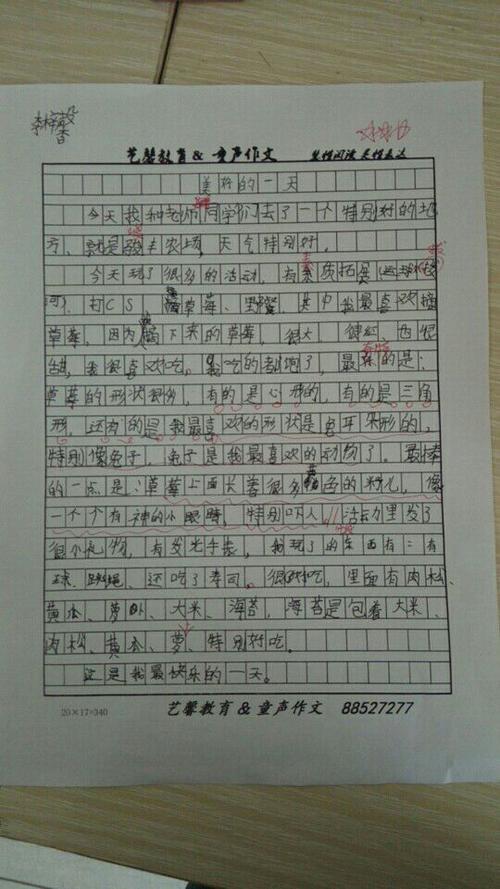 艺馨教育 & 童声作文
美好的一天
今天我和老师同学们去了一个特别好的地
方,就是农场,天气特别好。
今天玩了很多的活动,有素质拓展
河),打CS 草莓、野餐,其中我最喜欢摘
草莓,因为摘下来的草莓,很大 很红、也很
甜,我很喜欢吃。我吃的都饱了,最的是:
草莓的形状很多,有的是心形的,有的是三角
形,还有的是我最喜欢的形状是兔耳朵形的,
特别像兔子,兔子是我最喜欢的动物了。最棒
的一点是:草莓上面长着很多色的籽儿,像
一个个有神的小眼睛,特别吓人,活动里发了
很小礼物,有发光手表,我玩了的东西有:有
球、跳绳、还吃了寿司。很好吃,里面有肉松、
黄瓜、萝卜、大米、海苔,海苔是包着大米、
肉松、黄瓜、萝、特别好吃。
这是我最快乐的一天。
20×17=340
艺馨教育 & 童声作文 88527277